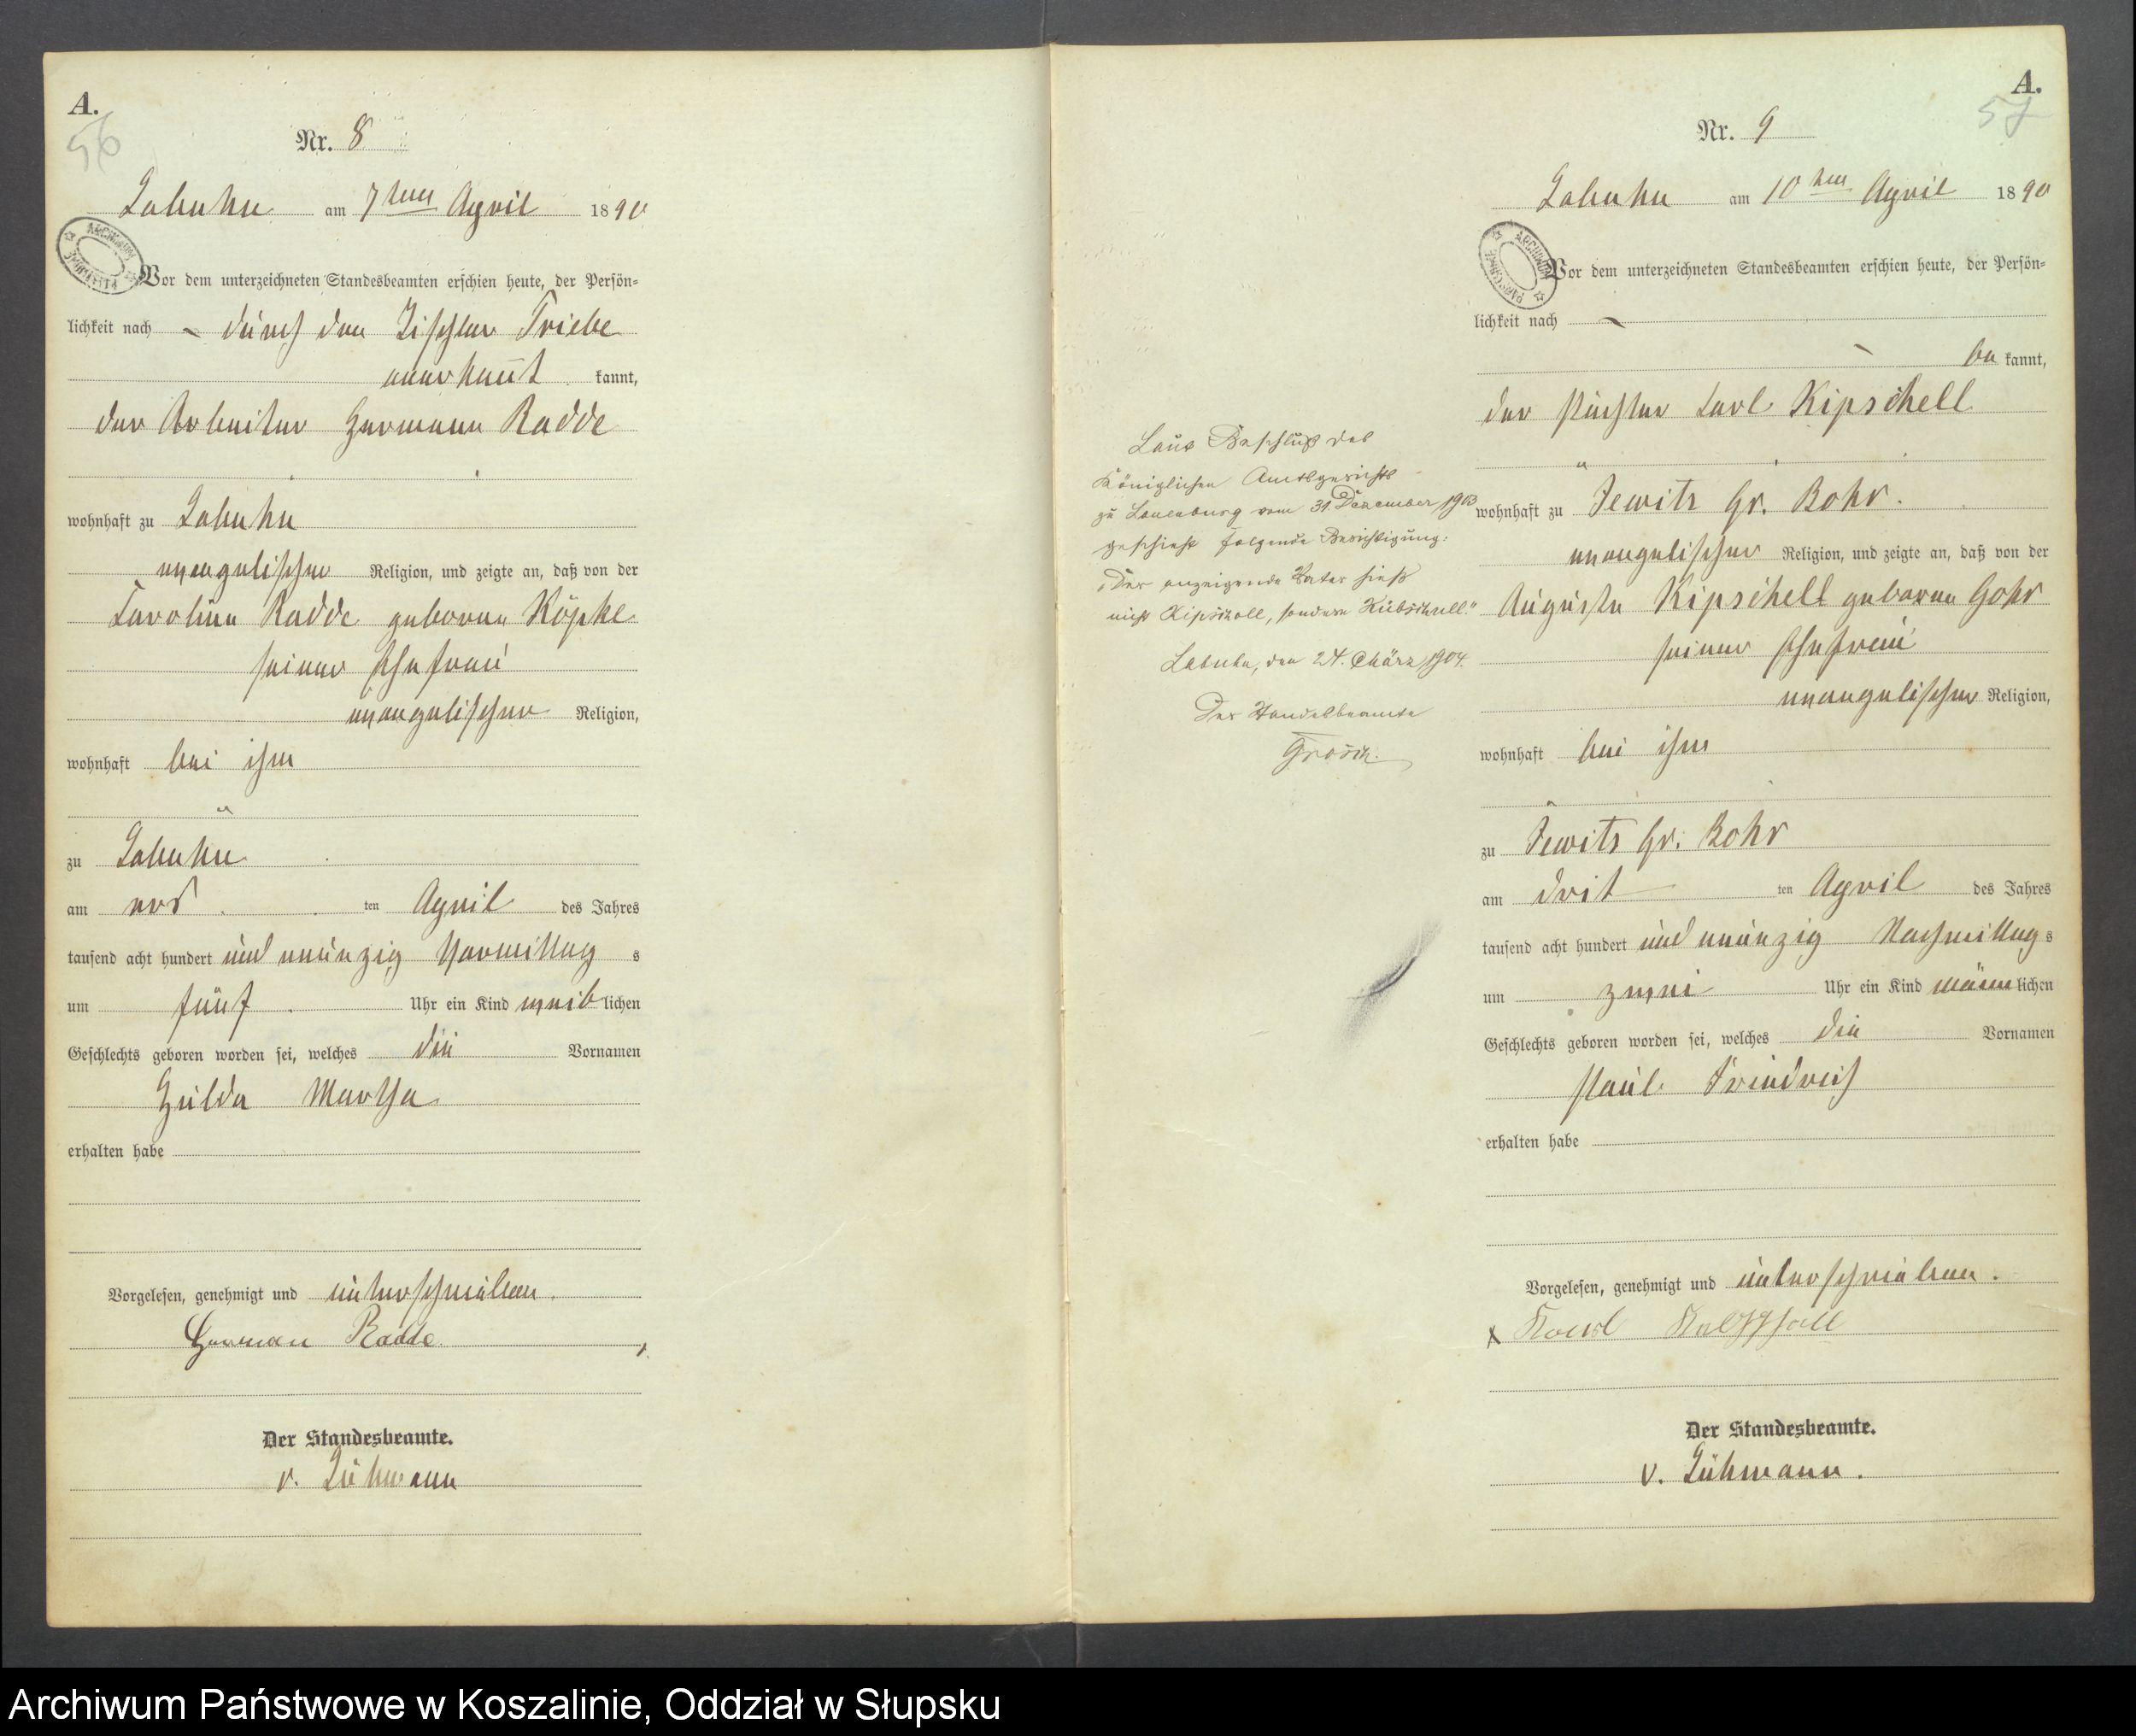 A.
56
Nr. 8
Labuhn am 7ten April 1890
Vor dem unterzeichneten Standesbeamten erschien heute, der Persön-
lichkeit nach durch den Tischler Triebe
anerkannt kannt,
der Arbeiter Hermann Radde
wohnhaft zu Labuhn
evangelischer Religion, und zeigte an, daß von der
Caroline Radde geborene Köpke
seiner Ehefrau
evangelischer Religion,
wohnhaft bei ihm
zu Labuhn
am ers ten April des Jahres
tausend acht hundert und neunzig Vormittag s
um fünf Uhr ein Kind weiblichen
Geschlechts geboren worden sei, welches die Vornamen
Hulda Martha
erhalten habe
Vorgelesen, genehmigt und unterschrieben.
Herman Radde
Der Standesbeamte.
v. Lühmann
Laut Beschluß des
Königlichen Amtsgerichts
zu Lauenburg vom 31. Dezember 1903
geschieht folgende Berichtigung:
„Der anzeigende Vater hieß
nicht Kipschell, sondern Kübschull."
Labuhn, den 24. März 1904.
Der Standesbeamte
Grosch.
A.
57
Nr. 9
Labuhn am 10ten April 1890
Vor dem unterzeichneten Standesbeamten erschien heute, der Persön-
lichkeit nach
be kannt,
der Pächter Carl Kipschell
wohnhaft zu Jewitz Gr. Rohr.
evangelischer Religion, und zeigte an, daß von der
Auguste Kipschell geborene Gohr
seiner Ehefrau
evangelischer Religion,
wohnhaft bei ihm
zu Jewitz Gr. Rohr
am drit ten April des Jahres
tausend acht hundert und neunzig Nachmittag s
um zwei Uhr ein Kind männlichen
Geschlechts geboren worden sei, welches die Vornamen
Paul Friedrich
erhalten habe
Vorgelesen, genehmigt und unterschrieben.
x
Der Standesbeamte.
v. Lühmann.
Archiwum Państwowe w Koszalinie, Oddział w Słupsku